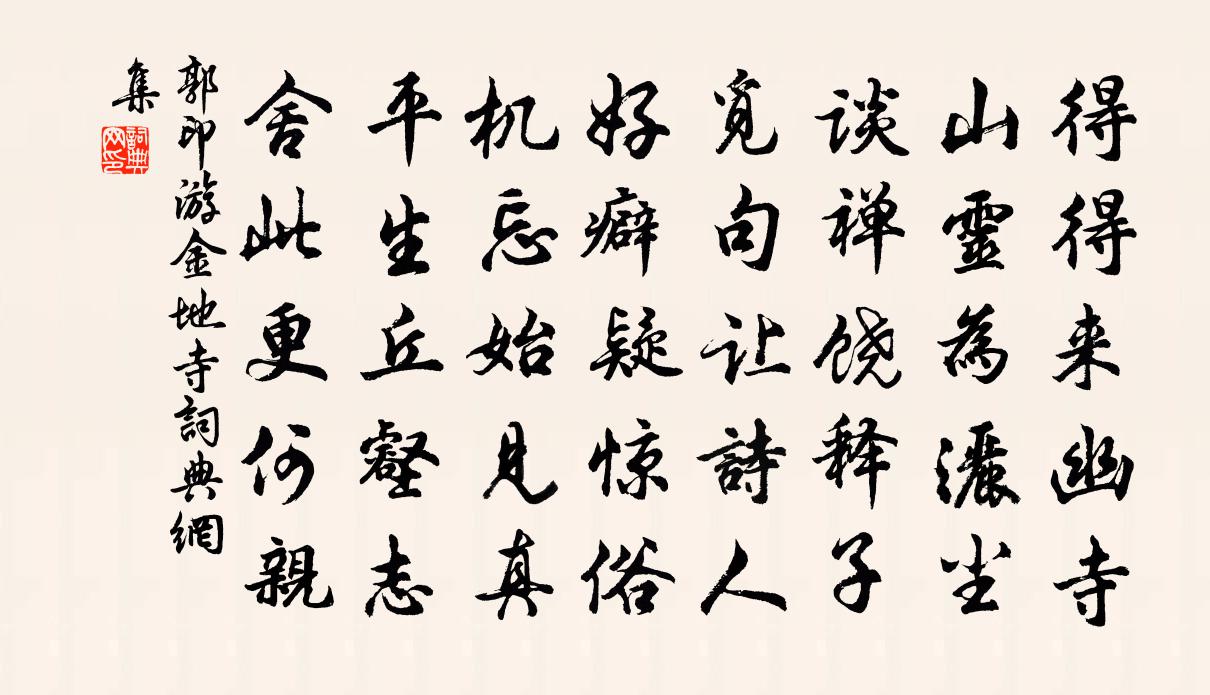 得得来幽寺
山靈為灑尘
谈禅饶释子
觅句让詩人
好癖疑惊俗
机忘始见真
平生丘壑志
舍此更何親
郭印游金地寺詞典網
集
詞典
网印